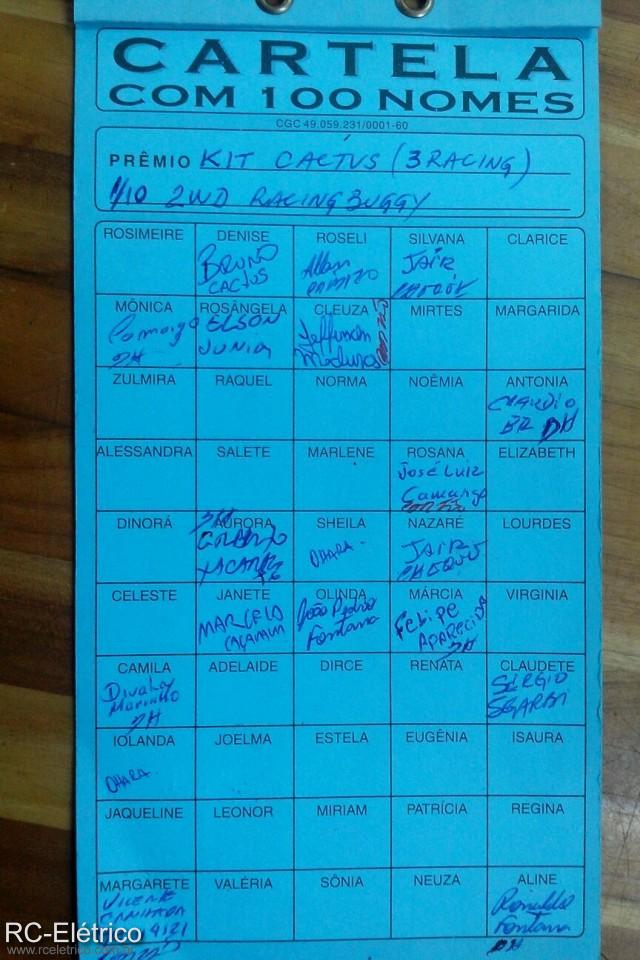 CARTELA
COM 100 NOMES
CGC 49.059.231/0001-60
PRÊMIO KIT CACTUS (3RACING)
1/10 2WD RACING BUGGY
ROSIMEIRE DENISE ROSELI SILVANA CLARICE
BRUNO Allan JAIR
CACTUS
MÔNICA ROSÂNGELA CLEUZA MIRTES MARGARIDA
Camargo ELSON Jefferson
JUNIA
ZULMIRA RAQUEL NORMA NOÊMIA ANTONIA
BR
ALESSANDRA SALETE MARLENE ROSANA ELIZABETH
José Luiz
Camargo
DINORÁ AURORA SHEILA NAZARÉ LOURDES
OHARA. JAIR
CELESTE JANETE OLINDA MÁRCIA VIRGINIA
MARCELO João Pedro Felipe
Fontana APARECIDA
CAMILA ADELAIDE DIRCE RENATA CLAUDETE
Marinho SÉRGIO
SGARBI
IOLANDA JOELMA ESTELA EUGÊNIA ISAURA
OHARA.
JAQUELINE LEONOR MIRIAM PATRÍCIA REGINA
MARGARETE VALÉRIA SÔNIA NEUZA ALINE
VICENTE Ronaldo
4121 Fontana
RC-Elétrico